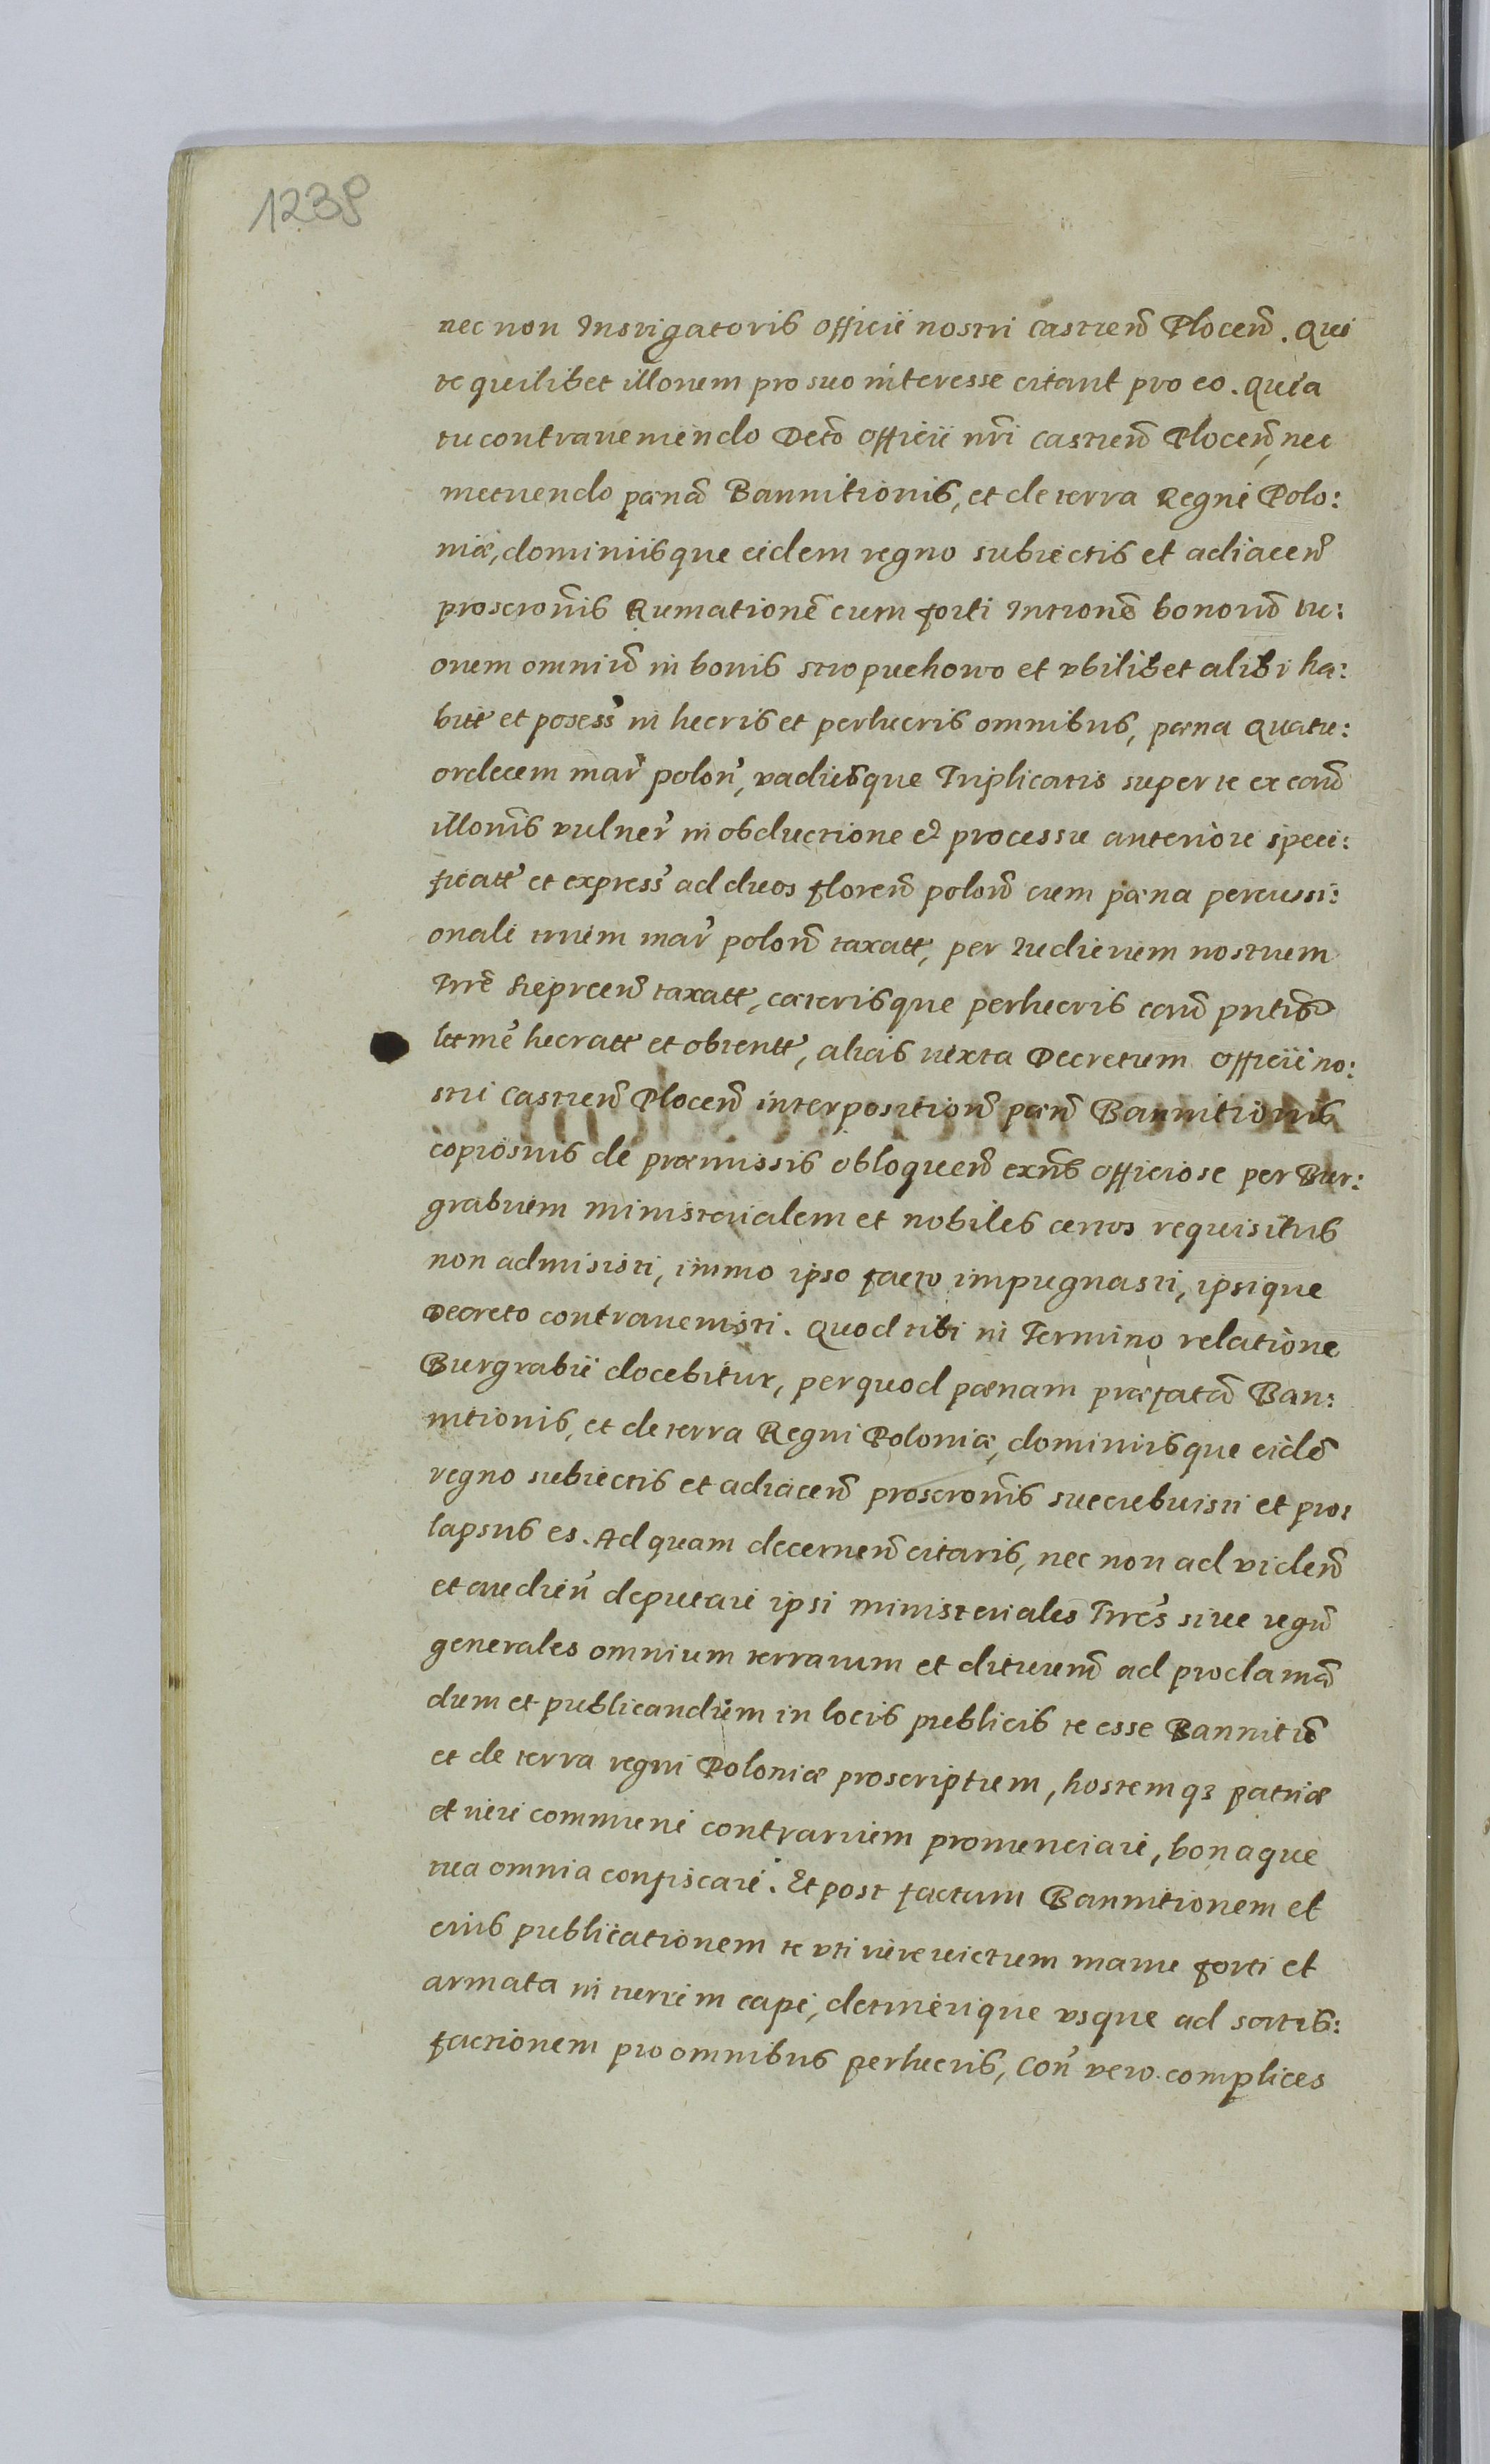 1238
nec non Instigatoris officii nostri Castren̄ Plocen̄. Qui
te quilibet illorum pro suo interesse citant pro eo. Quia
tu contraveniendo Decr̄o officii nr̄i Castren̄ Plocen̄, nec
metuendo pœnā Bannitionis, et de terra Regni Polo:
niæ, dominiisque eidem regno subiectis et adiacen̄
proscr̄onis Rumationē cum forti Intr̄onē bonorū tu:
orum omniū in bonis Stropuchowo et vbilibet alibi ha:
bitt et posess in lucris et perlucris omnibus, pœna quatu:
ordecem mar̄ polon̄, vadiisque Triplicatis super te ex cau̅
illor̄um vulner̄ in obductione et processu anteriore speci:
ficatt et express ad duos floren̄ polon̄ cum pœna percussi:
onali trium mar̄ polon̄ taxatt, per Iudicium nostrum
Trr̄e taxatt, cæterisque perlucris cau̅ pn̄tis
lucratt et obtentt, alias iuxta Decretum officii no:
stri Castren̄ Plocen̄ interposition̄ pœn̄ Bannitionis
copiosius de præmissis obloquen̄ exn̄s officiose per Bur:
grabium ministerialem et nobiles certos requisitus
non admisisti, immo ipso facto impugnasti, ipsique
Decreto contravenisti. Quod tibi in Termino relatione
Burgrabii docebitur, perquod pœnam præfatā Ban:
nitionis, et de terra Regni Poloniæ, dominiisque eidē
regno subiectis et adiacen̄ proscr̄onis succubuisti et pro:
lapsus es. Ad quam decernen̄ citaris, nec non ad viden̄
et audien̄ deputari ipsi ministeriales Trr̄es sive regn̄
generales omnium terrarum et districtuum ad proclamā
dum et publicandum in locis publicis te esse Bannitū
et de terra regni Poloniæ proscriptum, hostemq3 patriæ
et iuri communi contrarium pronunciari, bonaque
tua omnia confiscari. Et post factam Bannitionem et
eius publicationem te vti iure victum manu forti et
armata in turrim capi, detinerique vsque ad satis:
factionem pro omnibus perlucris, Con̄ vero complices